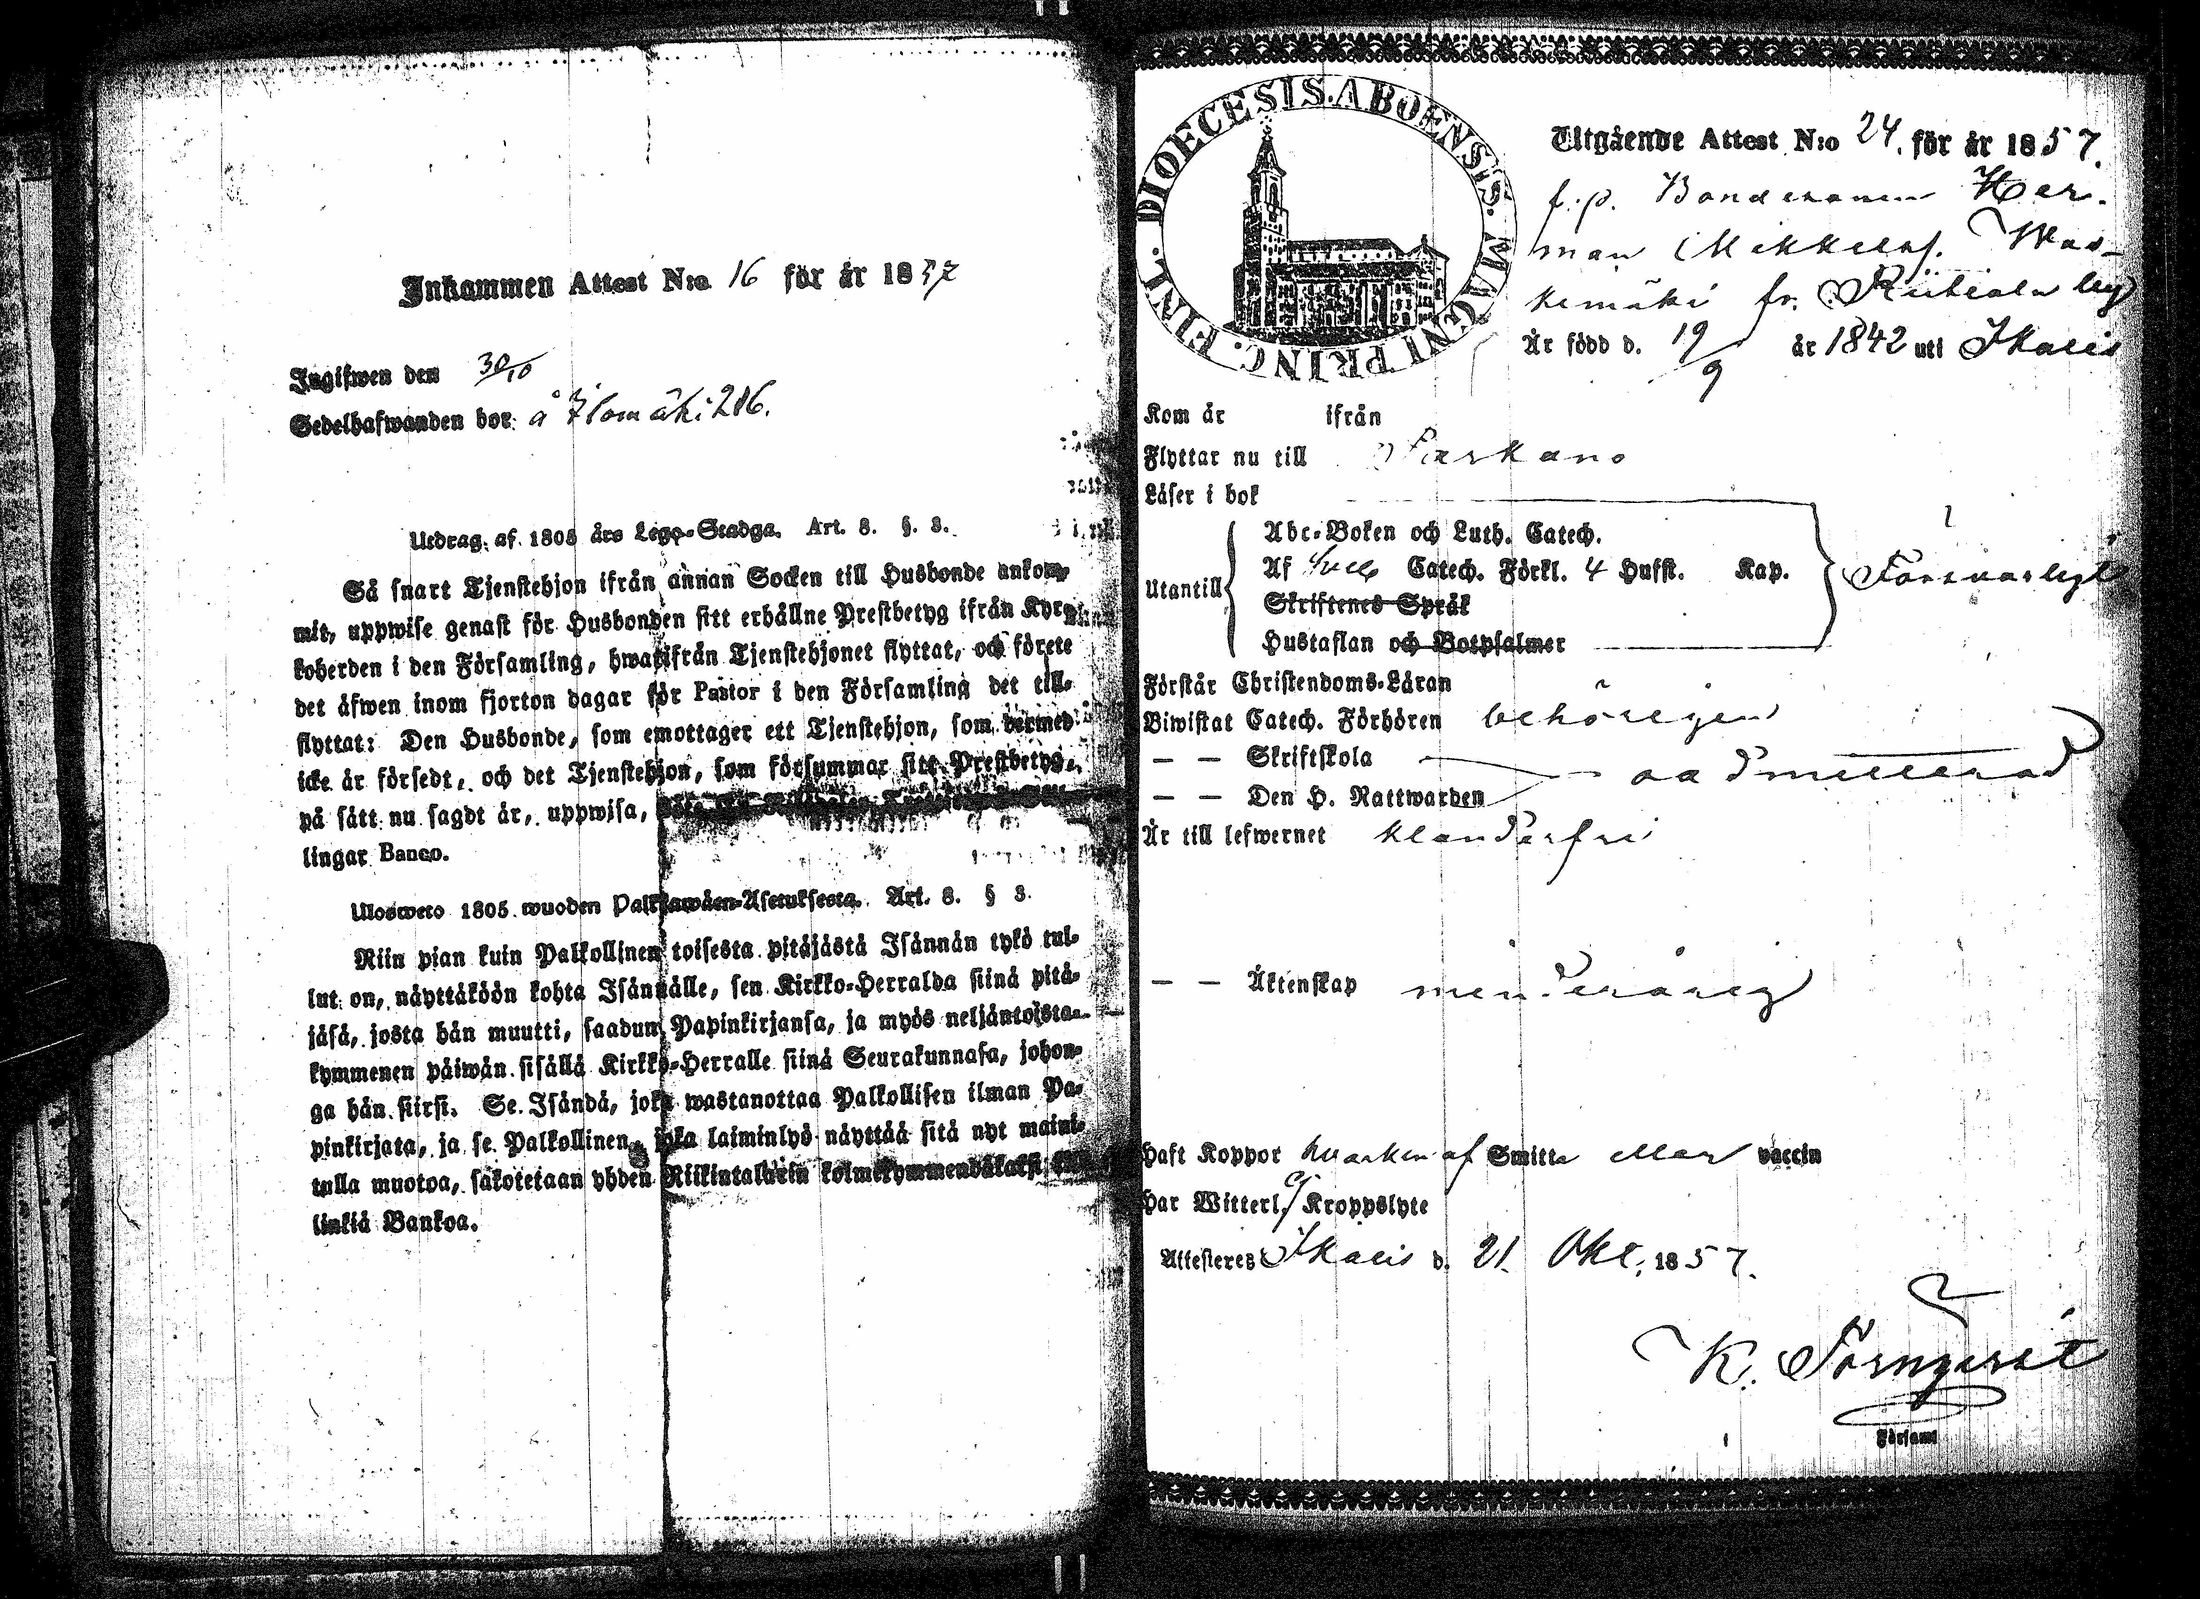 Inkommen Attest N:o 16 för år 1857
Ingifwen den 30/10
Sedelhafwanden bor: å Ilomäki 286.
Utdrag af 1805 års Lego-Stadga. Art. 8. §. 3.
Så snart Tjenstehjon ifrån annan Socken till Husbonde ankom-
mit, uppwise genast för Husbonden sitt erhållne Prestbetyg ifrån Kyr-
koherden i den Församling, hwarifrån Tjenstehjonet flyttat, och förete
det äfwen inom fjorton dagar för Pastor i den Församling det till-
flyttat: Den Husbonde, som emottager ett Tjenstehjon, som dermed
icke är försedt, och det Tjenstehjon, som försummar sitt Prestbetyg,
på sätt nu sagdt är, uppwisa,
lingar Banco.
Ulosweto 1805 wuoden Palkkawäen-Asetuksesta. Art. 8. § 3.
Niin pian kuin Palkollinen toisesta pitäjästä Isännän tykö tul-
lut on, näyttäköön kohta Isännälle, sen Kirkko-Herralda siinä pitä-
jäsä, josta hän muutti, saadun Papinkirjansa, ja myös neljäntoista-
kymmenen päiwän sisällä Kirkko-Herralle siinä Seurakunnasa, johon-
ga hän siirsi. Se Isändä, joka wastanottaa Palkollisen ilman Pa-
pinkirjata, ja se Palkollinen joka laiminlyö näyttää sitä nyt maini-
tulla muotoa, sakotetaan yhden Riikintalarin kolmekymmendäkaksi
linkiä Bankoa.
DIOECESIS. ABOENSIS. MAGNI PRINC. FINL.
Utgående Attest N:o 24. för år 1857.
f.p. Bondesonen Her-
man Mikkelsf. Was-
kemäki fr. by
Är född d. 19/9 år 1842 uti Ikalis
Kom år ifrån
Flyttar nu till Parkano
Läser i bok
Utantill
Abc-Boken och Luth. Catech.
Af Sveb Catech. Förkl. 4 Hufst. Kap.
Skriftenes Språk
Hustaflan och Botpsalmer
Försvarligt
Förstår Christendoms-Läran
Biwistat Catech. Förhören behörigen
— — Skriftskola
oadmitterad
— — Den H. Nattwarden
Är till lefwernet klanderfri
— — Äktenskap minderårig
Haft Koppor hvarken af Smitta eller vaccin
Har Witterl. ej Kroppslyte
Attesteres Ikalis d. 21. Okt. 1857.
K. Törnqvist
Församl